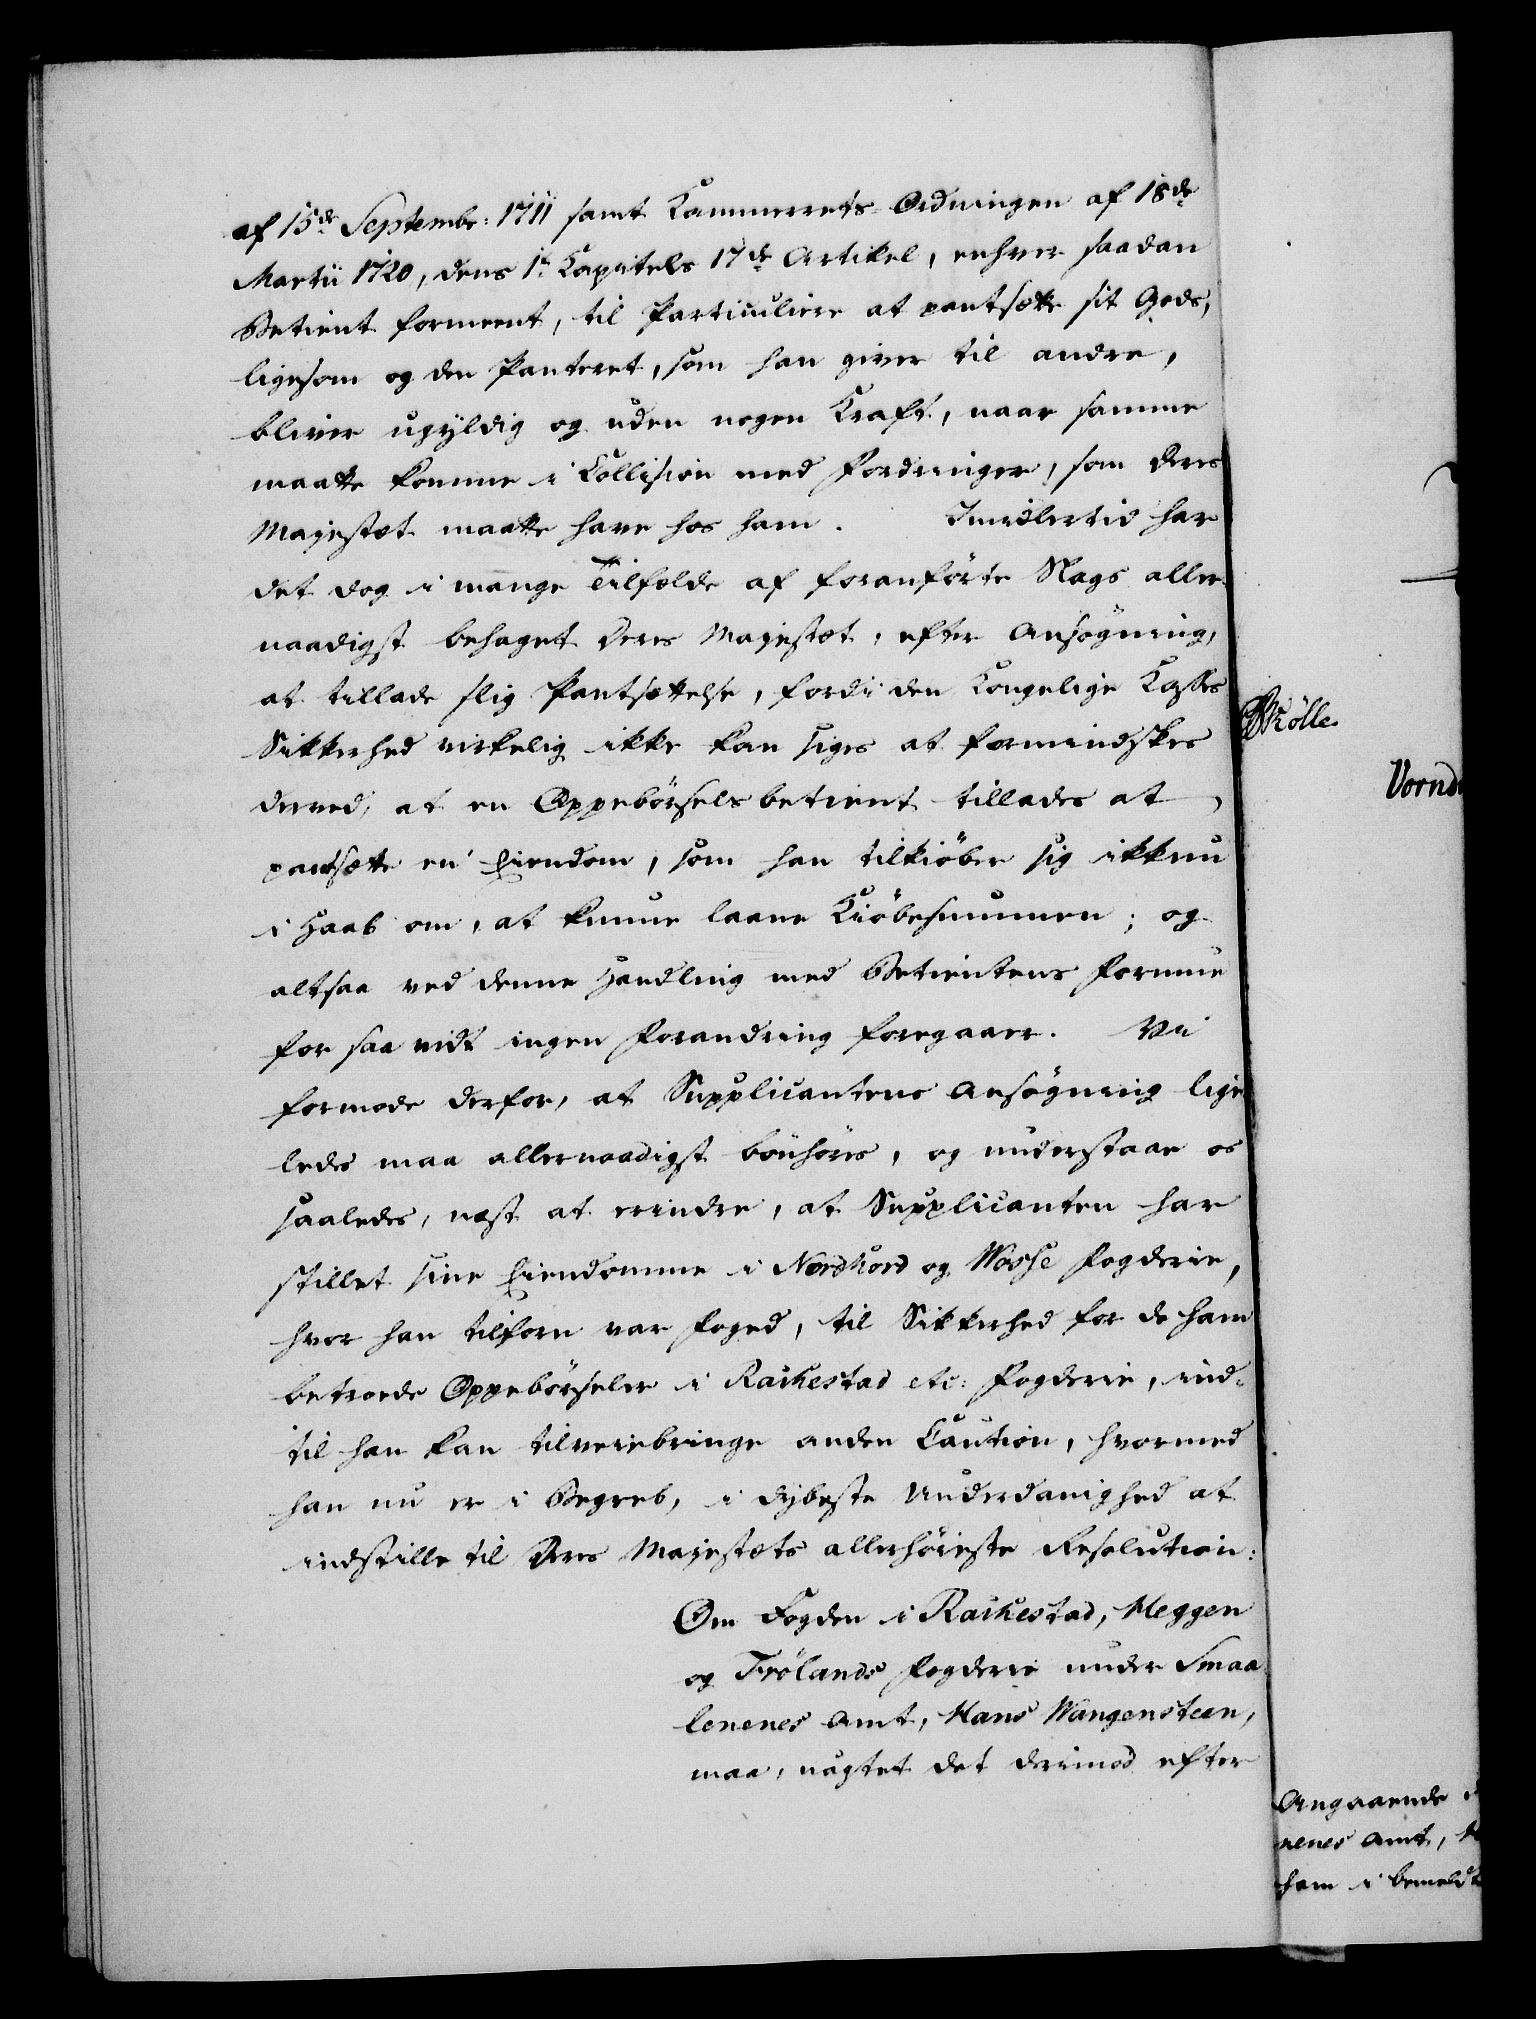 af 15de Septembr: 1711 samt Kammerrets-Ordningen af 18de
Martii 1720, dens 1te Kapitels 17de Artikel, enhver saadan
Betient formeent, til Particuliere at pantsætte sit Gods,
ligesom og den Panteret, som han giver til andre,
bliver ugyldig og uden nogen Kraft, naar samme
maatte komme i Collision med Fordringer, som Deres
Majestæt maatte have hos ham. Imidlertid har
det dog i mange Tilfælde af foranførte Slags aller-
naadigst behaget Deres Majestæt, efter Ansøgning,
at tillade slig Pantsættelse, fordi den Kongelige Kasses
Sikkerhed virkelig ikke kan siges at formindskes
derved, at en Oppebørselsbetient tillades at
pantsætte en Eiendom, som han tilkiøber sig ikkun
i Haab om, at kunne laane Kiøbesummen; og
altsaa ved denne Handling med Betientens Formue
for saa vidt ingen Forandring foregaaer. Vi
formode derfor, at Supplicantens Ansøgning lige
ledes maa allernaadigst bönhöres, og understaae os
saaledes, næst at erindre, at Supplicanten har
stillet sine Eiendomme i Nordhord og Wosse Fogderie,
hvor han tilforn var Foged, til Sikkerhed for de ham
betroede Oppebørseler i Rackestad etc: Fogderie, ind-
til han kan tilveiebringe anden Caution, hvormed
han nu er i Begreb, i dybeste Underdanighed at
indstille til Deres Majestæts allerhøieste Resolution:
Om Fogden i Rackestad, Heggen
og Frölands Fogderie under Smaa
lenenes Amt, Hans Wangensteen,
maa, uagtet det derimod efter
Mölle
Angaaende
nenes Amt,
ham i bemeldte